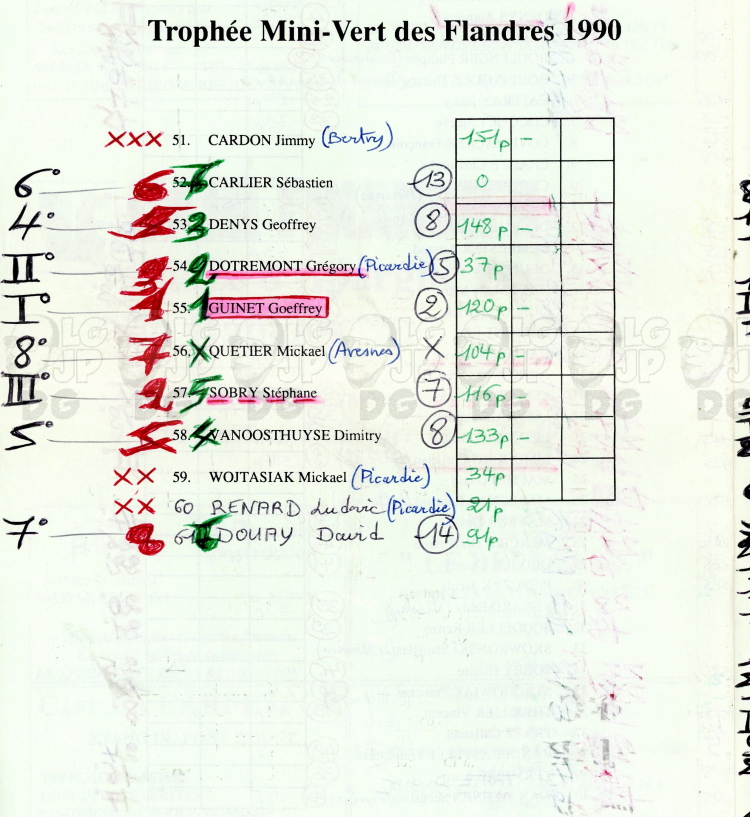 Trophée Mini-Vert des Flandres 1990
XXX 51. CARDON Jimmy (Bertry) 151p -
6° 6 52. CARLIER Sébastien 13 0
4° 53. 3 DENYS Geoffrey 8 148p -
II° 54. 2 DOTREMONT Grégory (Picardie) 5 37p
I° 1 55. 1 GUINET Goeffrey 2 120p -
8° 7 56. X QUETIER Mickael (Avesnes) X 104p -
III° 2 57. 5 SOBRY Stéphane 7 116p -
5° 5 58. 4 VANOOSTHUYSE Dimitry 8 133p -
XX 59. WOJTASIAK Mickael (Picardie) 34p
XX 60 RENARD Ludovic (Picardie) 21p
7° 8 61 DOUAY David 14 91p
LG JP DG